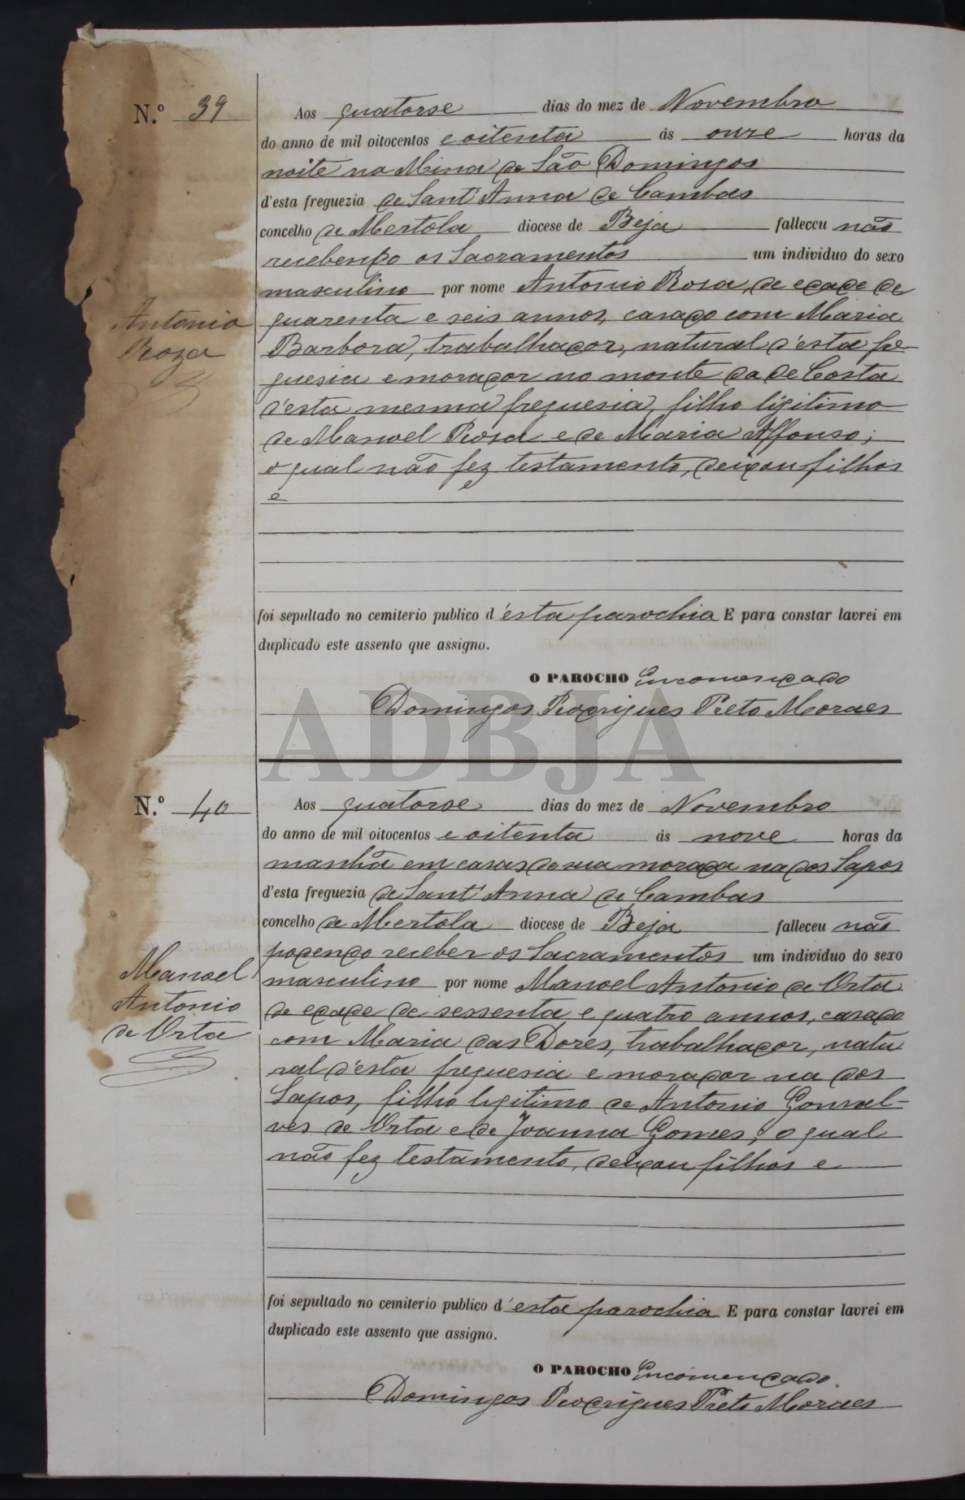 N.º 39
Aos quatorse dias do mez de Novembro
do anno de mil oitocentos e oitenta ás onze horas da
noite na Mina de São Domingos
d'esta freguezia de Sant'Anna de Cambas
concelho de Mertola diocese de Beja falleceu não
recebendo os Sacramentos um individuo do sexo
masculino por nome Antonio Rosa, de edade de
quarenta e seis annos, casado com Maria
Barbora, trabalhador, natural d'esta fre-
guesia e morador no monte da de Costa
d'esta mesma freguesia, filho ligitimo
de Manoel Rosa e de Maria Affonso;
o qual não fez testamento, deixou filhos
e
foi sepultado no cemiterio publico d'esta parochia E para constar lavrei em
duplicado este assento que assigno.
O PAROCHO Encomendado
Domingos Rodrigues Preto Moraes
Antonio
Roza
ADBJA
N.º 40
Aos quatorse dias do mez de Novembro
do anno de mil oitocentos e oitenta ás nove horas da
manhã em casas de sua morada na dos Sapos
d'esta freguezia de Sant'Anna de Cambas
concelho de Mertola diocese de Beja falleceu não
podendo receber os Sacramentos um individuo do sexo
masculino por nome Manoel Antonio de Orta
de edade de sessenta e quatro annos, casado
com Maria das Dores, trabalhador, natu
ral d'esta freguesia e morador na dos
Sapos, filho legitimo de Antonio Gonsal-
ves de Orta e de Joanna Gomes, o qual
não fez testamento, deixou filhos e
foi sepultado no cemiterio publico d'esta parochia E para constar lavrei em
duplicado este assento que assigno.
O PAROCHO Encomendado
Domingos Rodrigues Preto Moraes
Manoel
Antonio
de Orta